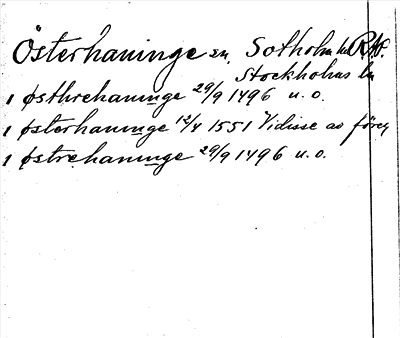 Österhaninge sn, Sotholm hd RAp.
Stockholms ln
1 østhrehaninge 29/9 1496 u. o.
1 østerhaninge 12/4 1551 Vidisse av föreg
1 østrehaninge 29/9 1496 u. o.